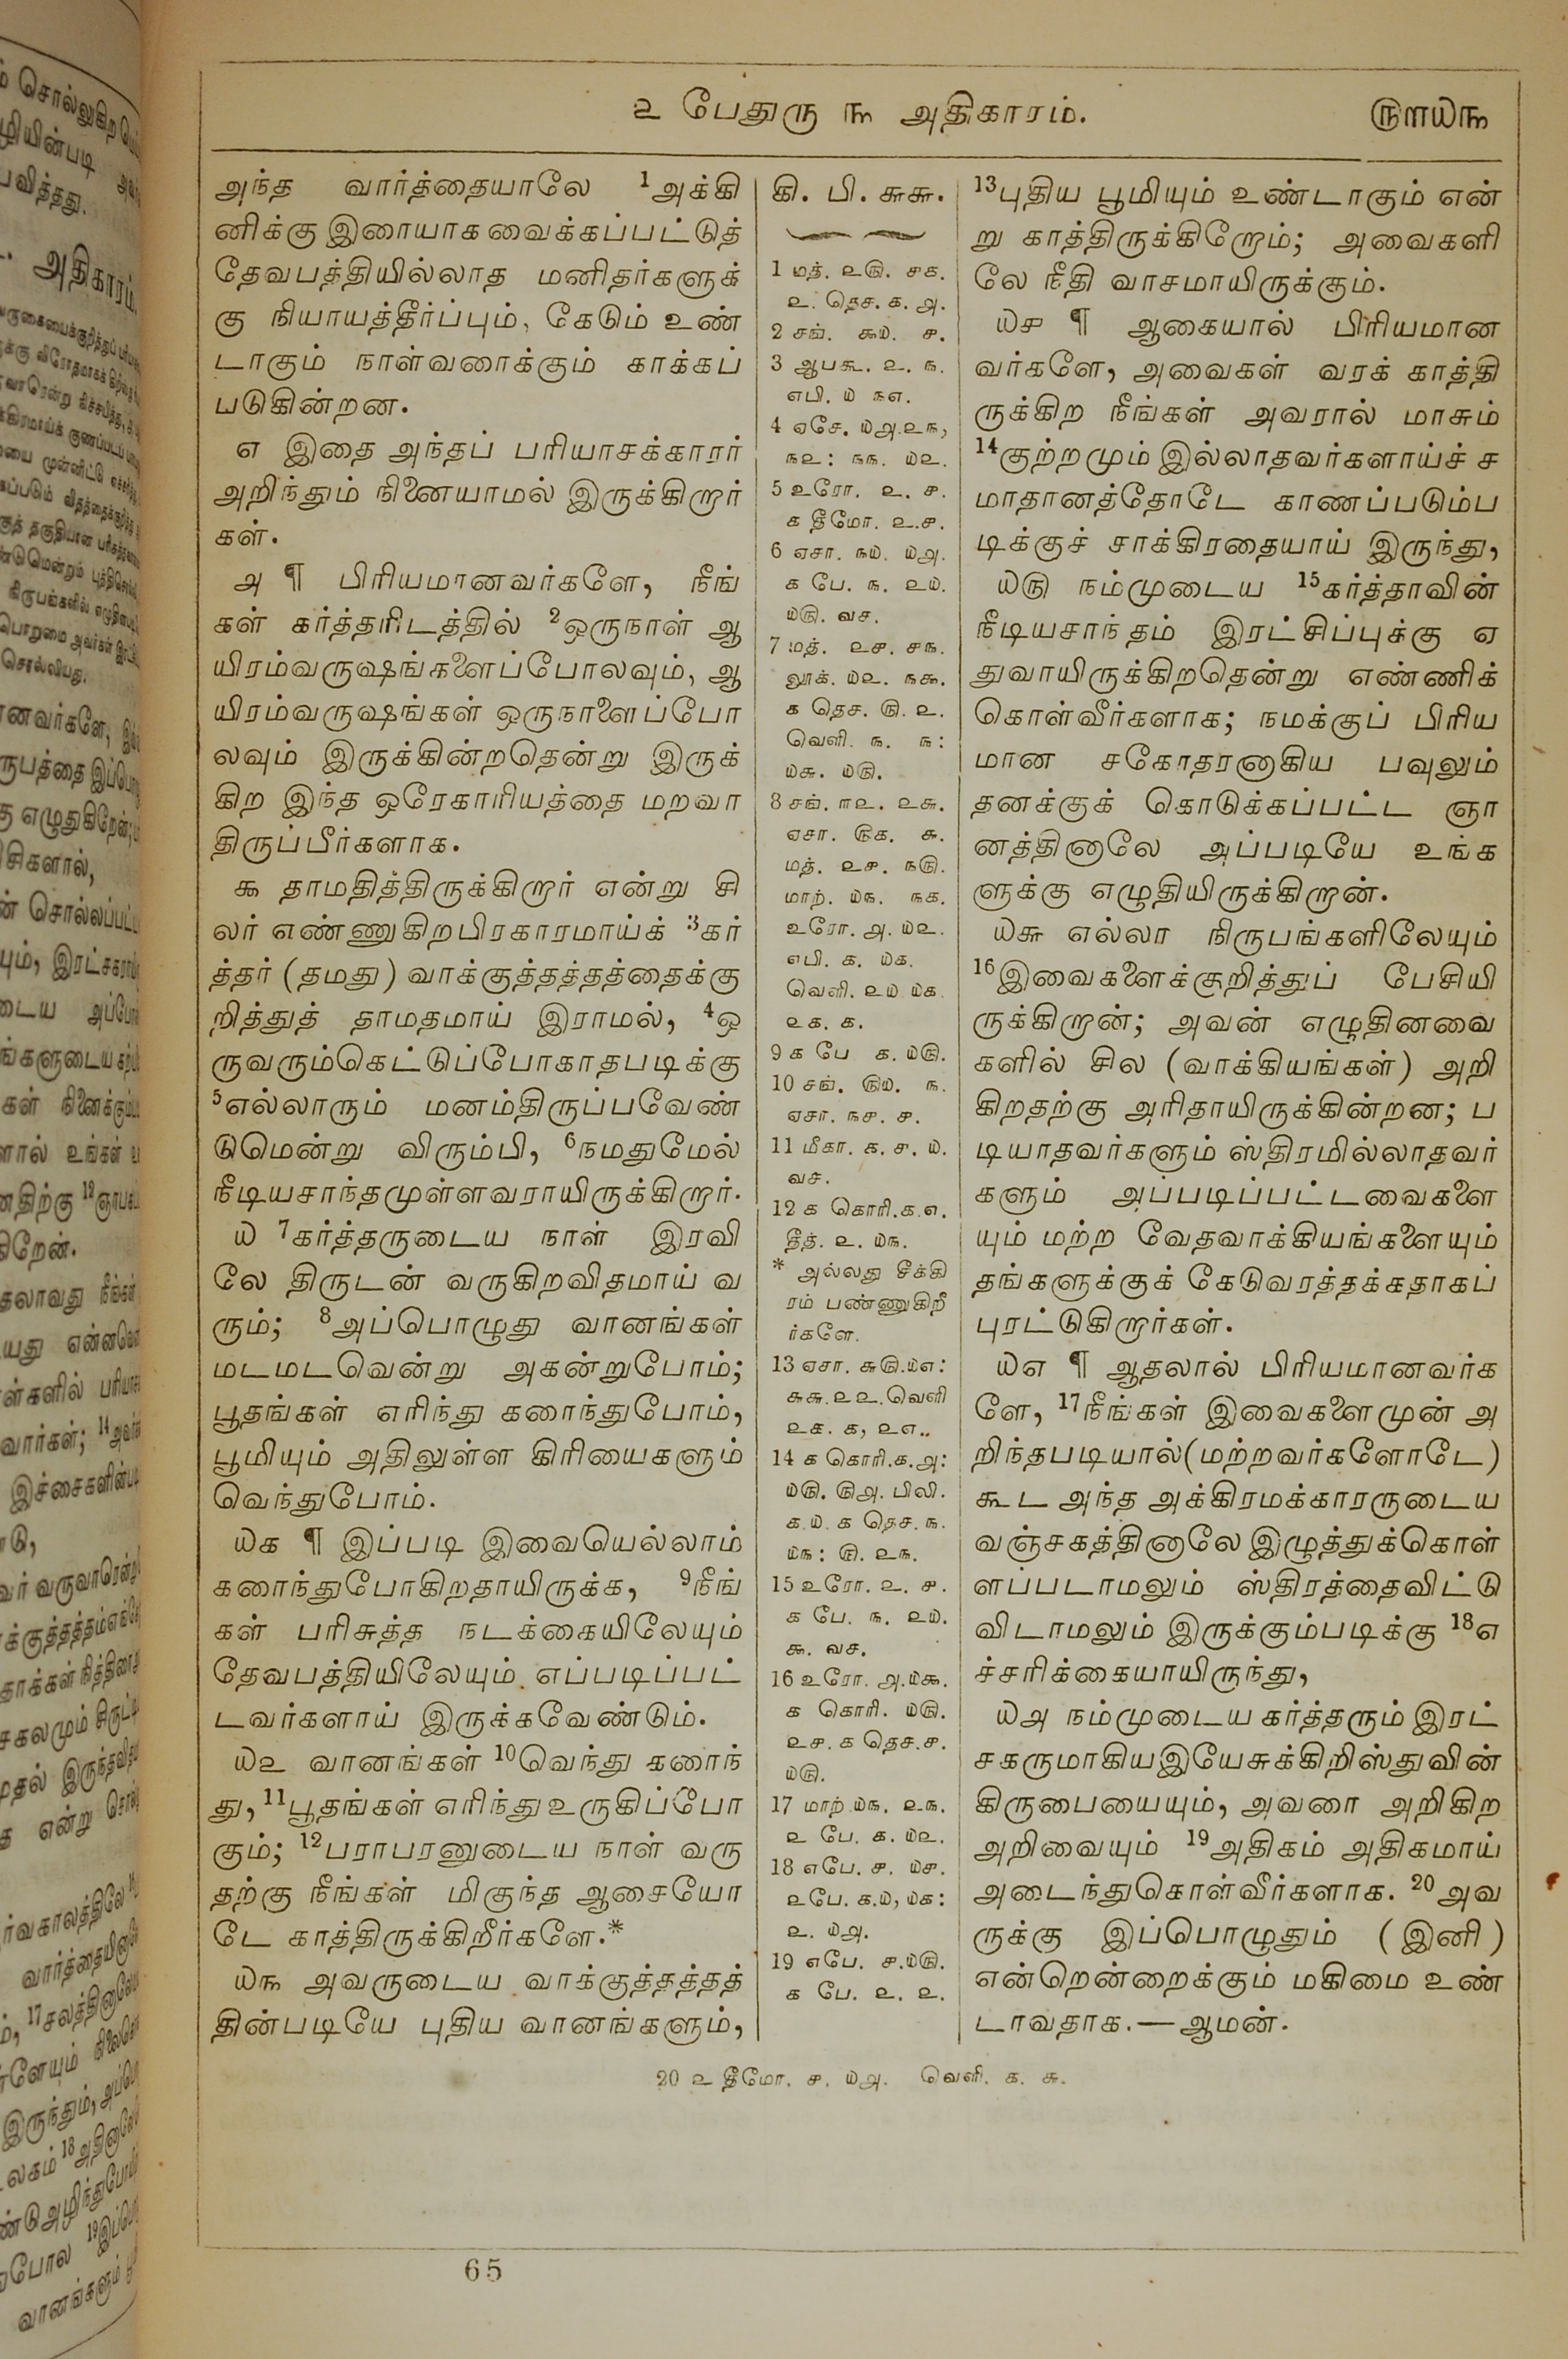 ௨ பேதுரு ௩ அதிகாரம்.
௫௱௰௩
அந்த வார்த்தையாலே 1அக்கி
னிக்கு இரையாக வைக்கப்பட்டுத்
தேவபத்தியில்லாத மனிதர்களுக்
கு நியாயத்தீர்ப்பும், கேடும் உண்
டாகும் நாள்வரைக்கும் காக்கப்
படுகின்றன.
௭ இதை அந்தப் பரியாசக்காரர்
அறிந்தும் நினையாமல் இருக்கிறார்
கள்.
௮ ¶ பிரியமானவர்களே, நீங்
கள் கர்த்தரிடத்தில் 2ஒருநாள் ஆ
யிரம்வருஷங்களைப்போலவும், ஆ
யிரம்வருஷங்கள் ஒருநாளைப்போ
லவும் இருக்கின்றதென்று இருக்
கிற இந்த ஒரேகாரியத்தை மறவா
திருப்பீர்களாக.
௯ தாமதித்திருக்கிறார் என்று சி
லர் எண்ணுகிறபிரகாரமாய்க் 3கர்
த்தர் (தமது) வாக்குத்தத்தத்தைக்கு
றித்துத் தாமதமாய் இராமல், 4ஒ
ருவரும்கெட்டுப்போகாதபடிக்கு
5எல்லாரும் மனம்திருப்பவேண்
டுமென்று விரும்பி, 6நமதுமேல்
நீடியசாந்தமுள்ளவராயிருக்கிறார்.
௰ 7கர்த்தருடைய நாள் இரவி
லே திருடன் வருகிறவிதமாய் வ
ரும்; 8அப்பொழுது வானங்கள்
மடமடவென்று அகன்றுபோம்;
பூதங்கள் எரிந்து கரைந்துபோம்,
பூமியும் அதிலுள்ள கிரியைகளும்
வெந்துபோம்.
௰௧ ¶ இப்படி இவையெல்லாம்
கரைந்துபோகிறதாயிருக்க, 9நீங்
கள் பரிசுத்த நடக்கையிலேயும்
தேவபத்தியிலேயும் எப்படிப்பட்
டவர்களாய் இருக்கவேண்டும்.
௰௨ வானங்கள் 10வெந்து கரைந்
து, 11பூதங்கள் எரிந்து உருகிப்போ
கும்; 12பராபரனுடைய நாள் வரு
தற்கு நீங்கள் மிகுந்த ஆசையோ
டே காத்திருக்கிறீர்களே.*
௰௩ அவருடைய வாக்குத்தத்தத்
தின்படியே புதிய வானங்களும்,
கி. பி. ௬௬.
1 மத். ௨௫. ௪௧.
௨. தெச. ௧. ௮.
2 சங். ௯௰. ௪.
3 ஆபகூ. ௨. ௩.
எபி. ௰ ௩௭.
4 ஏசே. ௰௮.௨௩,
௩௨: ௩௩. ௰௨.
5 உரோ. ௨. ௪.
௧ தீமோ. ௨.௪.
6 ஏசா. ௩௰. ௰௮.
௧ பே. ௩. ௨௰.
௰௫. வச.
7 மத். ௨௪. ௪௩.
லூக். ௰௨. ௩௯.
௧ தெச. ௫. ௨.
வெளி. ௩. ௩:
௰௬. ௰௫.
8 சங். ௱௨. ௨௬.
ஏசா. ௫௧. ௬.
மத். ௨௪. ௩௫.
மாற். ௰௩. ௩௧.
உரோ. ௮. ௰௨.
எபி. ௧. ௰௧.
வெளி. ௨௰ ௰௧
௨௧. ௧.
9 ௧ பே ௧. ௰௫.
10 சங். ௫௰. ௩.
ஏசா. ௩௪. ௪.
11 மீகா. ௧. ௪. ௰.
வச.
12 ௧ கொரி.௧.௭.
தீத். ௨. ௰௩.
* அல்லது சீக்கி
ரம் பண்ணுகிறீ
ர்களே.
13 ஏசா. ௬௫.௰௭:
௬௬.௨௨.வெளி
௨௧. ௧, ௨௭..
14 ௧ கொரி.௧.௮:
௰௫. ௫௮. பிலி.
௧.௰. ௧ தெச.௩.
௰௩: ௫. ௨௩.
15 உரோ. ௨. ௪.
௧ பே. ௩. ௨௰.
௬. வச.
16 உரோ. ௮.௰௯.
௧ கொரி. ௰௫.
௨௪. ௧ தெச.௪.
௰௫.
17 மாற் ௰௩. ௨௩.
௨ பே. ௧. ௰௨.
18 எபே. ௪. ௰௪.
௨பே. ௧.௰, ௰௧:
௨. ௰௮.
19 எபே. ௪.௰௫.
௧ பே. ௨. ௨.
13புதிய பூமியும் உண்டாகும் என்
று காத்திருக்கிறோம்; அவைகளி
லே நீதி வாசமாயிருக்கும்.
௰௪ ¶ ஆகையால் பிரியமான
வர்களே, அவைகள் வரக் காத்தி
ருக்கிற நீங்கள் அவரால் மாசும்
14குற்றமும் இல்லாதவர்களாய்ச் ச
மாதானத்தோடே காணப்படும்ப
டிக்குச் சாக்கிரதையாய் இருந்து,
௰௫ நம்முடைய 15கர்த்தாவின்
நீடியசாந்தம் இரட்சிப்புக்கு ஏ
துவாயிருக்கிறதென்று எண்ணிக்
கொள்வீர்களாக; நமக்குப் பிரிய
மான சகோதரனாகிய பவுலும்
தனக்குக் கொடுக்கப்பட்ட ஞா
னத்தினாலே அப்படியே உங்க
ளுக்கு எழுதியிருக்கிறான்.
௰௬ எல்லா நிருபங்களிலேயும்
16இவைகளைக்குறித்துப் பேசியி
ருக்கிறான்; அவன் எழுதினவை
களில் சில (வாக்கியங்கள்) அறி
கிறதற்கு அரிதாயிருக்கின்றன; ப
டியாதவர்களும் ஸ்திரமில்லாதவர்
களும் அப்படிப்பட்டவைகளை
யும் மற்ற வேதவாக்கியங்களையும்
தங்களுக்குக் கேடுவரத்தக்கதாகப்
புரட்டுகிறார்கள்.
௰௭ ¶ ஆதலால் பிரியமானவர்க
ளே, 17நீங்கள் இவைகளைமுன் அ
றிந்தபடியால்(மற்றவர்களோடே)
கூட அந்த அக்கிரமக்காரருடைய
வஞ்சகத்தினாலே இழுத்துக்கொள்
ளப்படாமலும் ஸ்திரத்தைவிட்டு
விடாமலும் இருக்கும்படிக்கு 18எ
ச்சரிக்கையாயிருந்து,
௰௮ நம்முடைய கர்த்தரும் இரட்
சகருமாகியஇயேசுக்கிறிஸ்துவின்
கிருபையையும், அவரை அறிகிற
அறிவையும் 19அதிகம் அதிகமாய்
அடைந்துகொள்வீர்களாக. 20அவ
ருக்கு இப்பொழுதும் (இனி)
என்றென்றைக்கும் மகிமை உண்
டாவதாக.—ஆமன்.
20 ௨ தீமோ. ௪. ௰௮. வெளி. ௧. ௬.
65